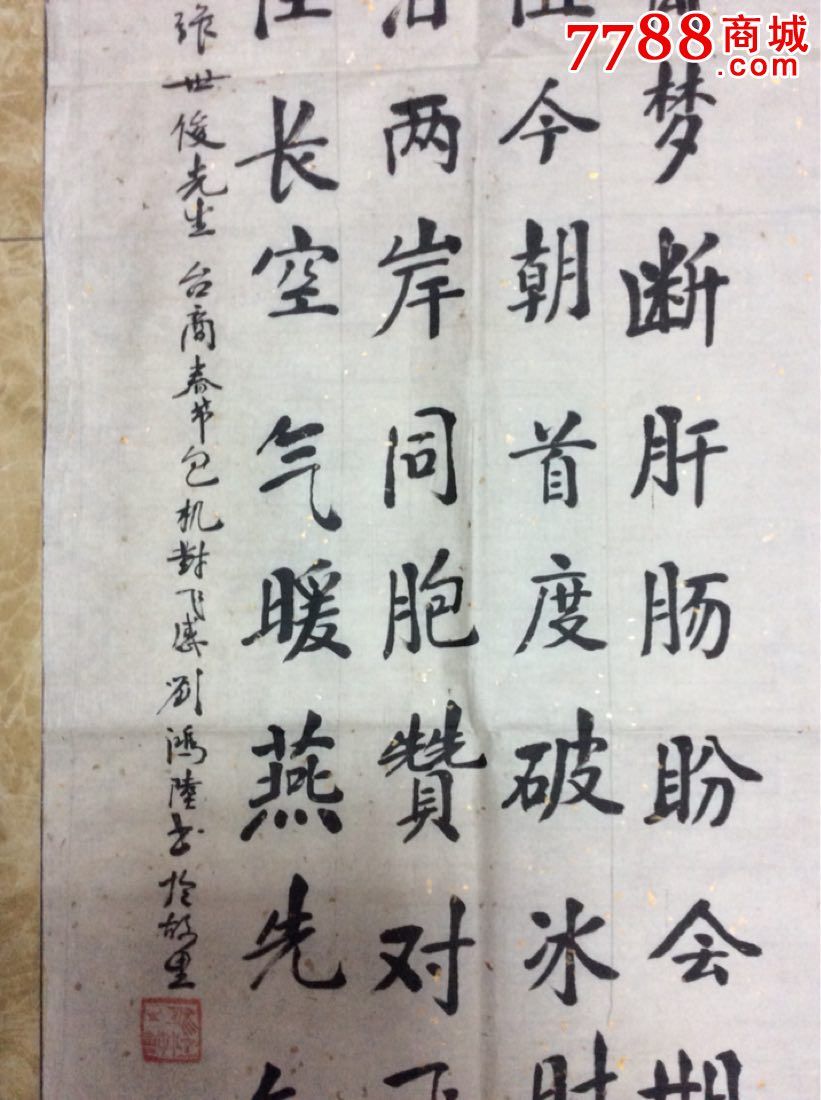 7788商城
.com
梦断肝肠盼会期
今朝首度破冰时
两岸同胞赞对飞
长空气暖燕先
张世俊先生台商春节包机對飞 劉鴻陸书於故里